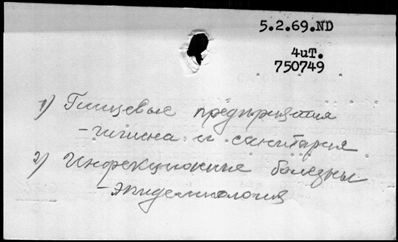 5.2.69.ND
4uT.
750749
1) Пищевые предприятия
- гигиена и санитария
2) Инфекционные болезни
- эпидемиология